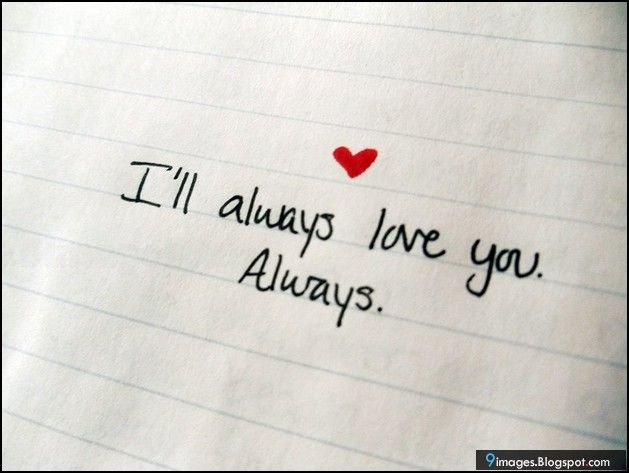 I'll always love you.
Always.
9images.Blogspot.com